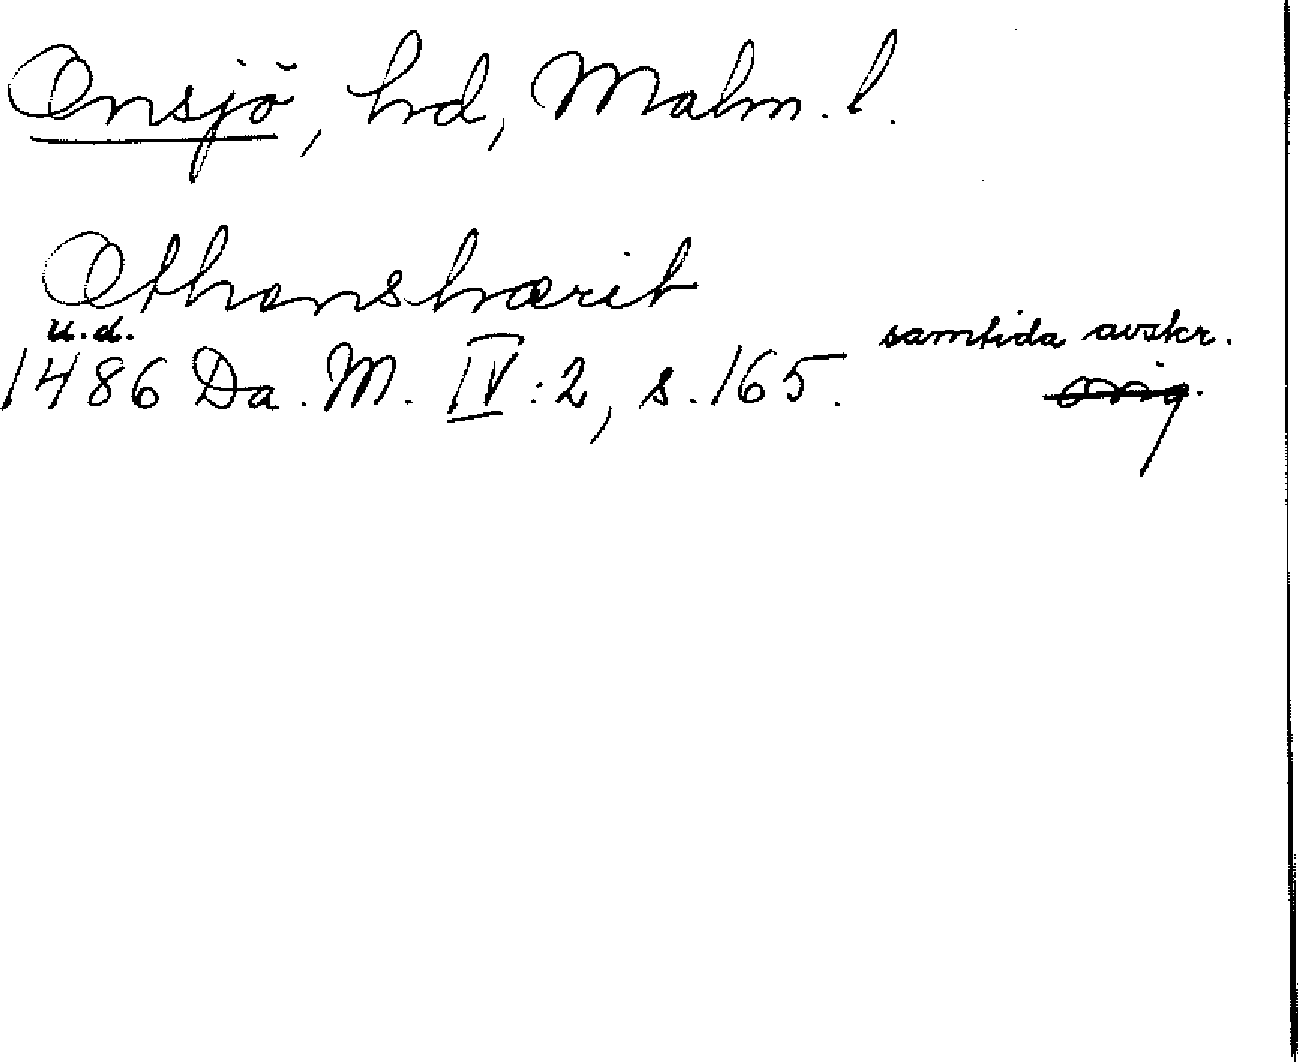 Onsjö, hd, Malm. l.
Othenshærit
u.d.
samtida avskr.
1486 Da. M. IV:2, s. 165. orig.